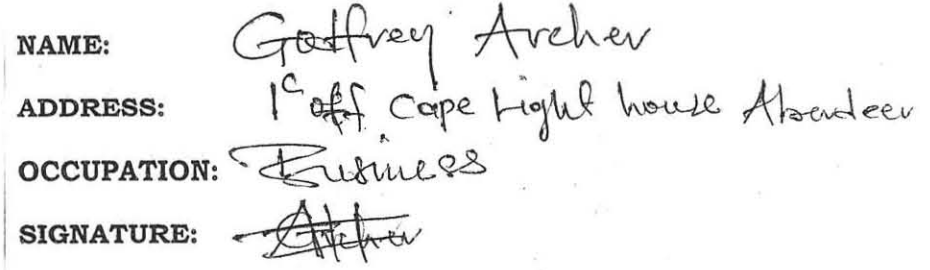 NAME: Godfrey Archer
ADDRESS: 1c off Cape Light house Aberdeen
OCCUPATION: Business
SIGNATURE: Archer